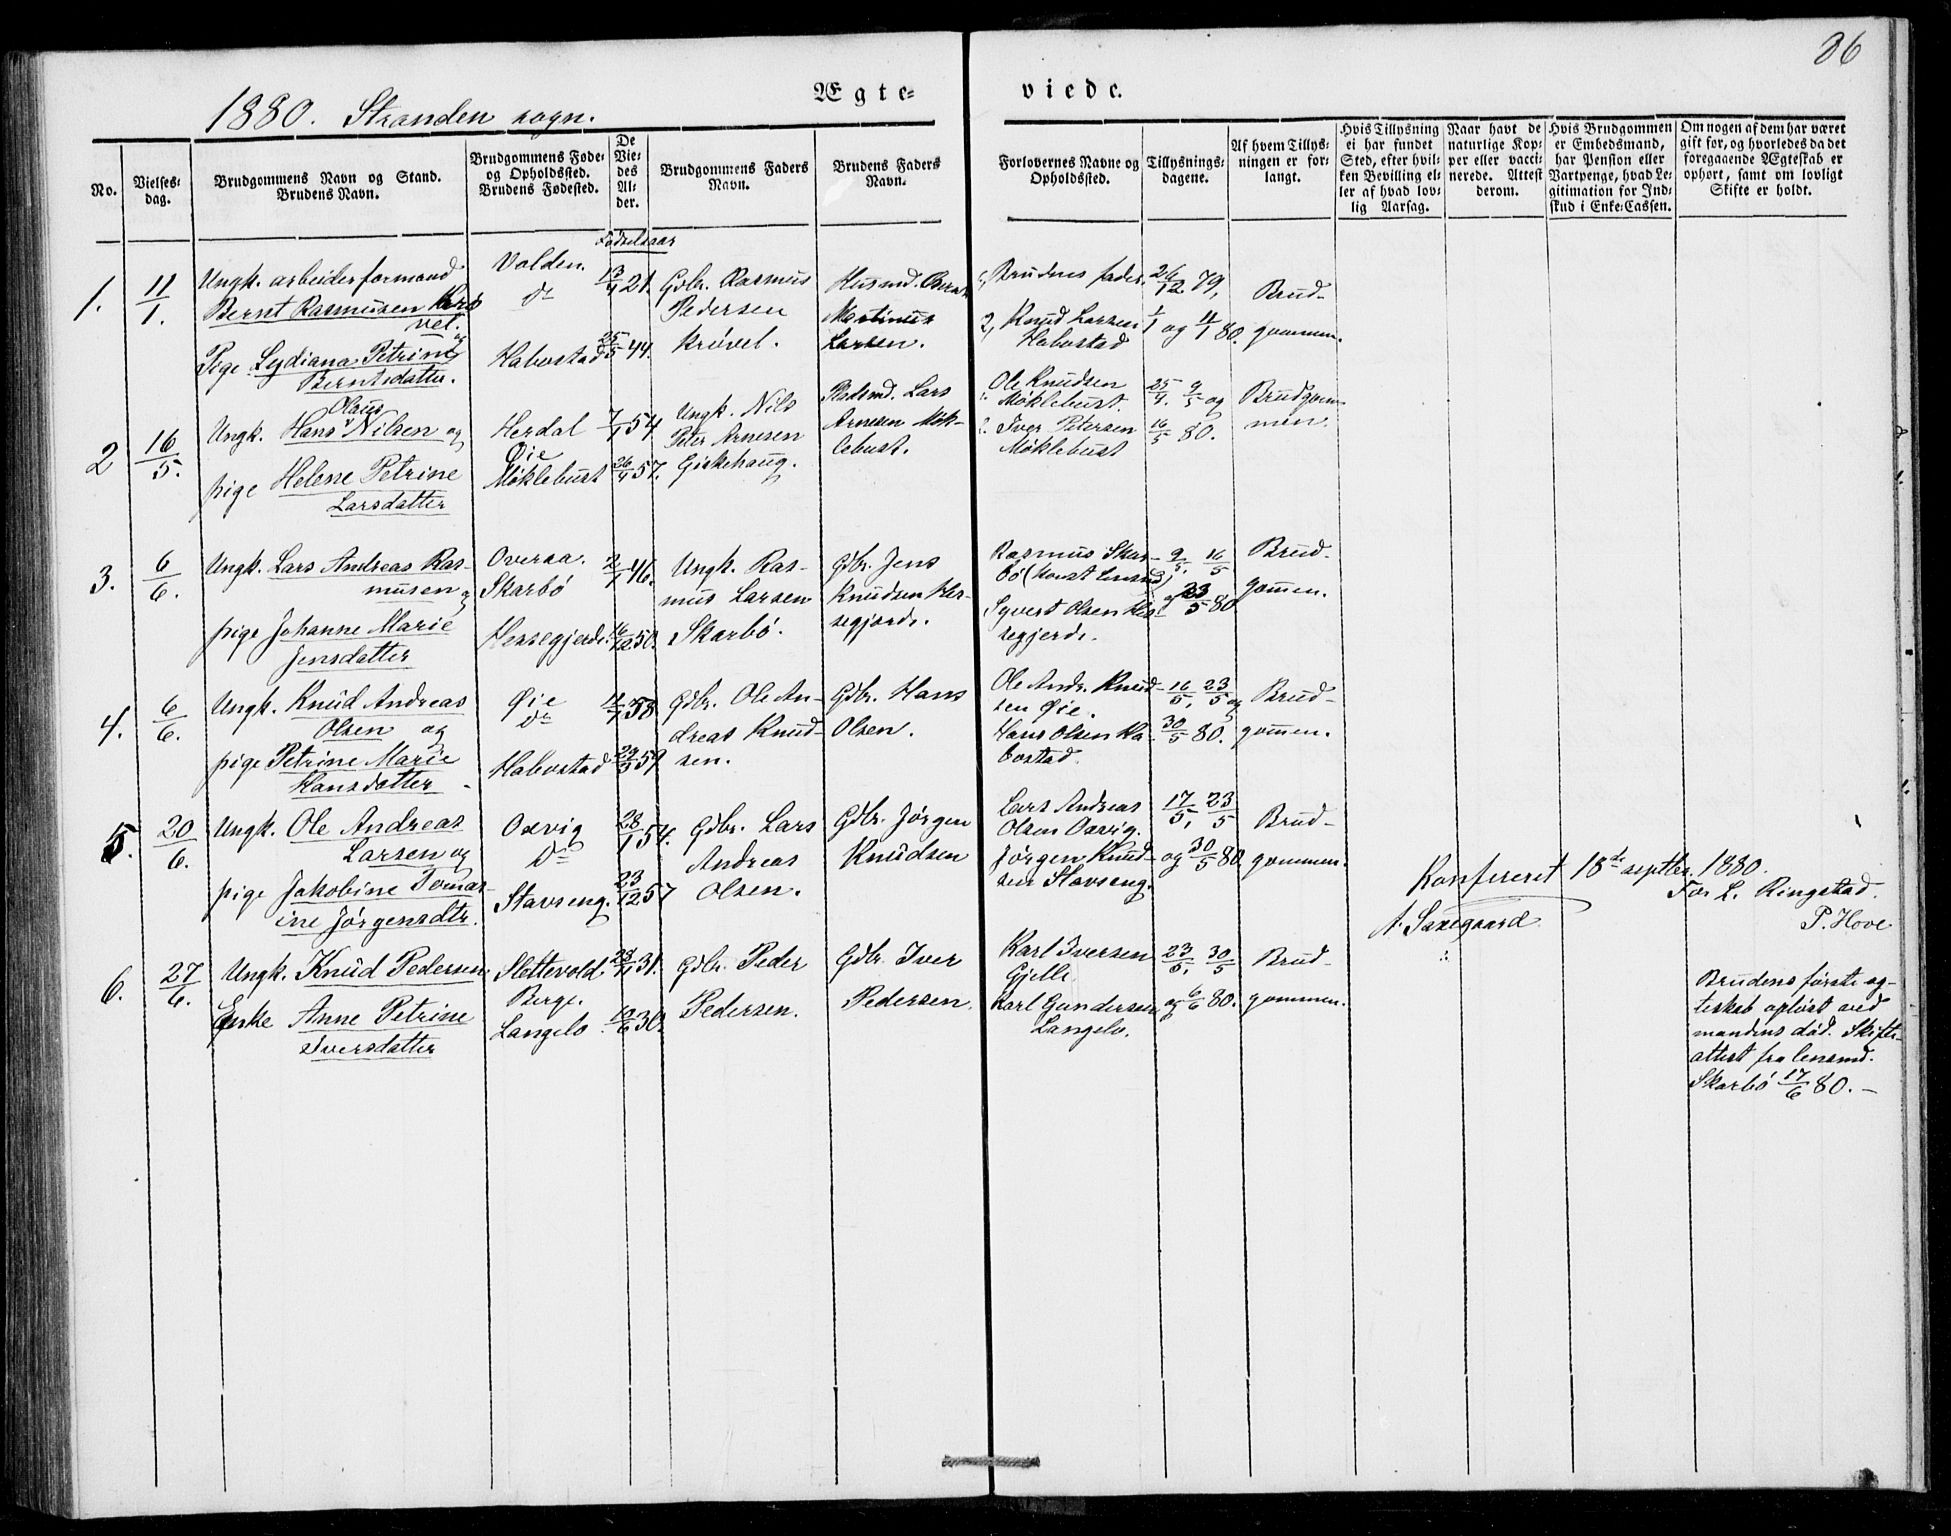 86
1880. Stranden sogn.
Ægte-
viede.
No.
Vielses-
dag.
Brudgommens Navn og Stand.
Brudens Navn.
Brudgommens Føde-
og Opholdssted.
Brudens Fødested.
De
Vie-
des
Al-
der.
Brudgommens Faders
Navn.
Brudens Faders
Navn.
Forlovernes Navne og
Opholdssted.
Tillysnings-
dagene.
Af hvem Tillys-
ningen er for-
langt.
Hvis Tillysning
ei har fundet
Sted, efter hvil-
ken Bevilling el-
ler af hvad lov-
lig Aarsag.
Naar havt de
naturlige Kop-
per eller vacci-
nerede. Attest
derom.
Hvis Brudgommen
er Embedsmand,
har Pension eller
Vartpenge, hvad Le-
gitimation for Ind-
skud i Enke-Cassen.
Om nogen af dem har været
gift før, og hvorledes da det
foregaaende Ægteskab er
ophørt, samt om lovligt
Skifte er holdt.
Fødselsaar
1.
11/1.
Ungk. arbeiderformand
Bernt Rasmusen Krø-
vel. og
Pige Lydiana Petrine
Berntsdatter.
Volden.
do
Habostad
21.
25/5 44.
Gdbr. Rasmus
Pedersen
Krövel.
Husmd. Bernt
Martinus
Larsen.
1, Brudens fader.
2, Knud Larsen
Habostad
26/12 79,
1/1 og 4/1 80.
Brud-
gommen.
2
16/5.
Olaus
Ungk. Hans Nilsen og
pige Helene Petrine
Larsdatter
Herdal
Øie
Möklebust
7/1 54
26/9 57.
Ungk. Nils
Peter Arnesen
Giskehaug.
Pladsmd. Lars
Arnesen Mök-
lebust.
Ole Knudsen
Möklebust.
2. Iver Petersen
Möklebust
25/4. 9/5 og
16/5 80.
Brudgom-
men.
3.
6/6.
Ungk. Lars Andreas Ras-
musen og
pige Johanne Marie
Jensdatter
Overaa.
Skarbö
Hessegjerde.
2/1 46.
16/12 50.
Ungk. Ras-
mus Larsen
Skarbö.
Gdbr. Jens
Knudsen Hes-
segjerde.
Rasmus Skar-
bö (Konst Lensmd)
Syvert Olsen Hes-
segjerde.
9/5, 16/5
og 23/5 80
Brud-
gommen.
4.
6/6.
Ungk. Knud Andreas
Olsen og
pige Petrine Marie
Hansdatter -
Øie
do
Habostad
58
59
Gdbr. Ole An-
dreas Knud-
sen.
Gdbr. Hans
Olsen.
Ole Andr. Knud-
sen Øie.
Hans Olsen Ha-
bostad.
16/5, 23/5 og
30/5 80.
Brud-
gommen.
5.
20/6.
Ungk. Ole Andreas
Larsen og
pige Jakobine Tomas-
ine Jørgensdtr.
Oxvig
do
Stavseng.
28/1 54.
23/12 57
Gdbr. Lars
Andreas
Olsen.
Gdbr. Jørgen
Knudsen
Lars Andreas
Olsen Oxvig.
Jørgen Knud-
sen Stavseng.
17/5, 23/5
og 30/5 80.
Brud-
gommen.
Konfereret 18de septbr. 1880.
For L. Ringstad.
A. Saxegaard
P. Hove
6.
27/6.
Ungk. Knud Pedersen
Enke Anne Petrine
Iversdatter
Slettevold
Berge.
Langelo
31.
30.
Gdbr. Peder
Pedersen.
Gdbr. Iver
Pedersen.
Karl Iversen
Gjelle
Karl Gundersen
Langelo.
23/5, 30/5
og 6/6 80.
Brud-
gommen.
Brudens første æg-
teskab opløst ved
mandens død. Skifte-
attest fra lensmd.
Skarbö 17/6 80. -